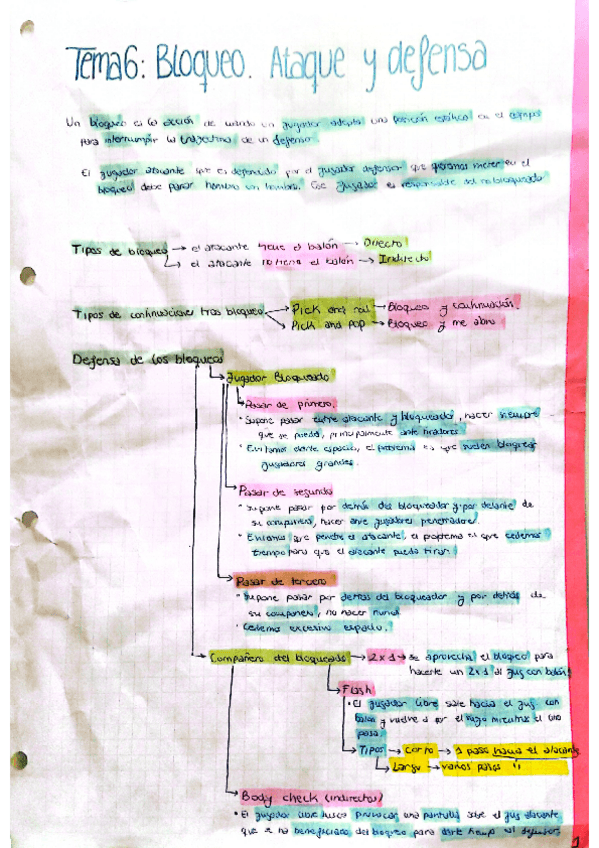 Tema 6: Bloqueo. Ataque y defensa
Un bloqueo es la acción de cuando un jugador adopta una posición estática en el campo
para interrumpir la trayectoria de un defensor.
El jugador atacante que es defendido por el jugador defensor que queramos meter en el
bloqueo debe parar hombro con hombro. Ese jugador es responsable del bloqueado.
Tipos de bloqueo → el atacante tiene el balón → Directo
→ el atacante no tiene el balón → Indirecto
Tipos de continuaciones tras bloqueo → Pick and roll → Bloqueo y continuación.
→ Pick and pop → Bloqueo y me abro
Defensa de los bloqueos
Jugador Bloqueado
Pasar de primero.
• Supone pasar entre atacante y bloqueador, hacer siempre
que se pueda, principalmente ante tiradores.
• Evitamos darle espacio, el problema es que suelen bloquear
jugadores grandes.
Pasar de segundo
• Supone pasar por detrás del bloqueador y por delante de
su compañero, hacer ante jugadores penetradores.
• Evitamos que penetre el atacante, el problema es que cedemos
tiempo para que el atacante pueda tirar.
Pasar de tercero
• Supone pasar por detras del bloqueador y por detrás de
su compañero, no hacer nunca.
• Cedemos excesivo espacio.
Compañero del bloqueado → 2x1 → se aprovecha el bloqueo para
hacerle un 2x1 al jug con balón.
Flash
• El jugador libre sale hacia el jug con
balón y vuelve a por el suyo mientras el otro
pasa.
Tipos → Corto → 1 paso hacia el atacante
→ Largo → varios pasos "
Body check (indirecto)
• El jugador libre busca provocar una pantalla sobre el jug atacante
que se ha beneficiado del bloqueo para darle tiempo al defensor.
1